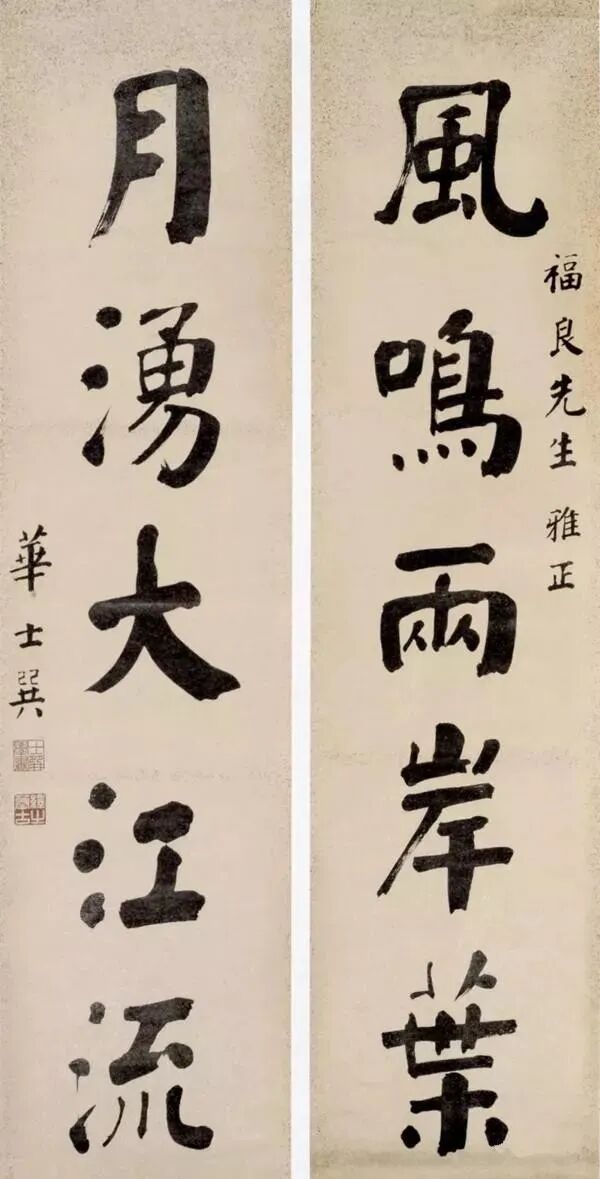 福良先生雅正
風鳴兩岸葉
月湧大江流
華士巽